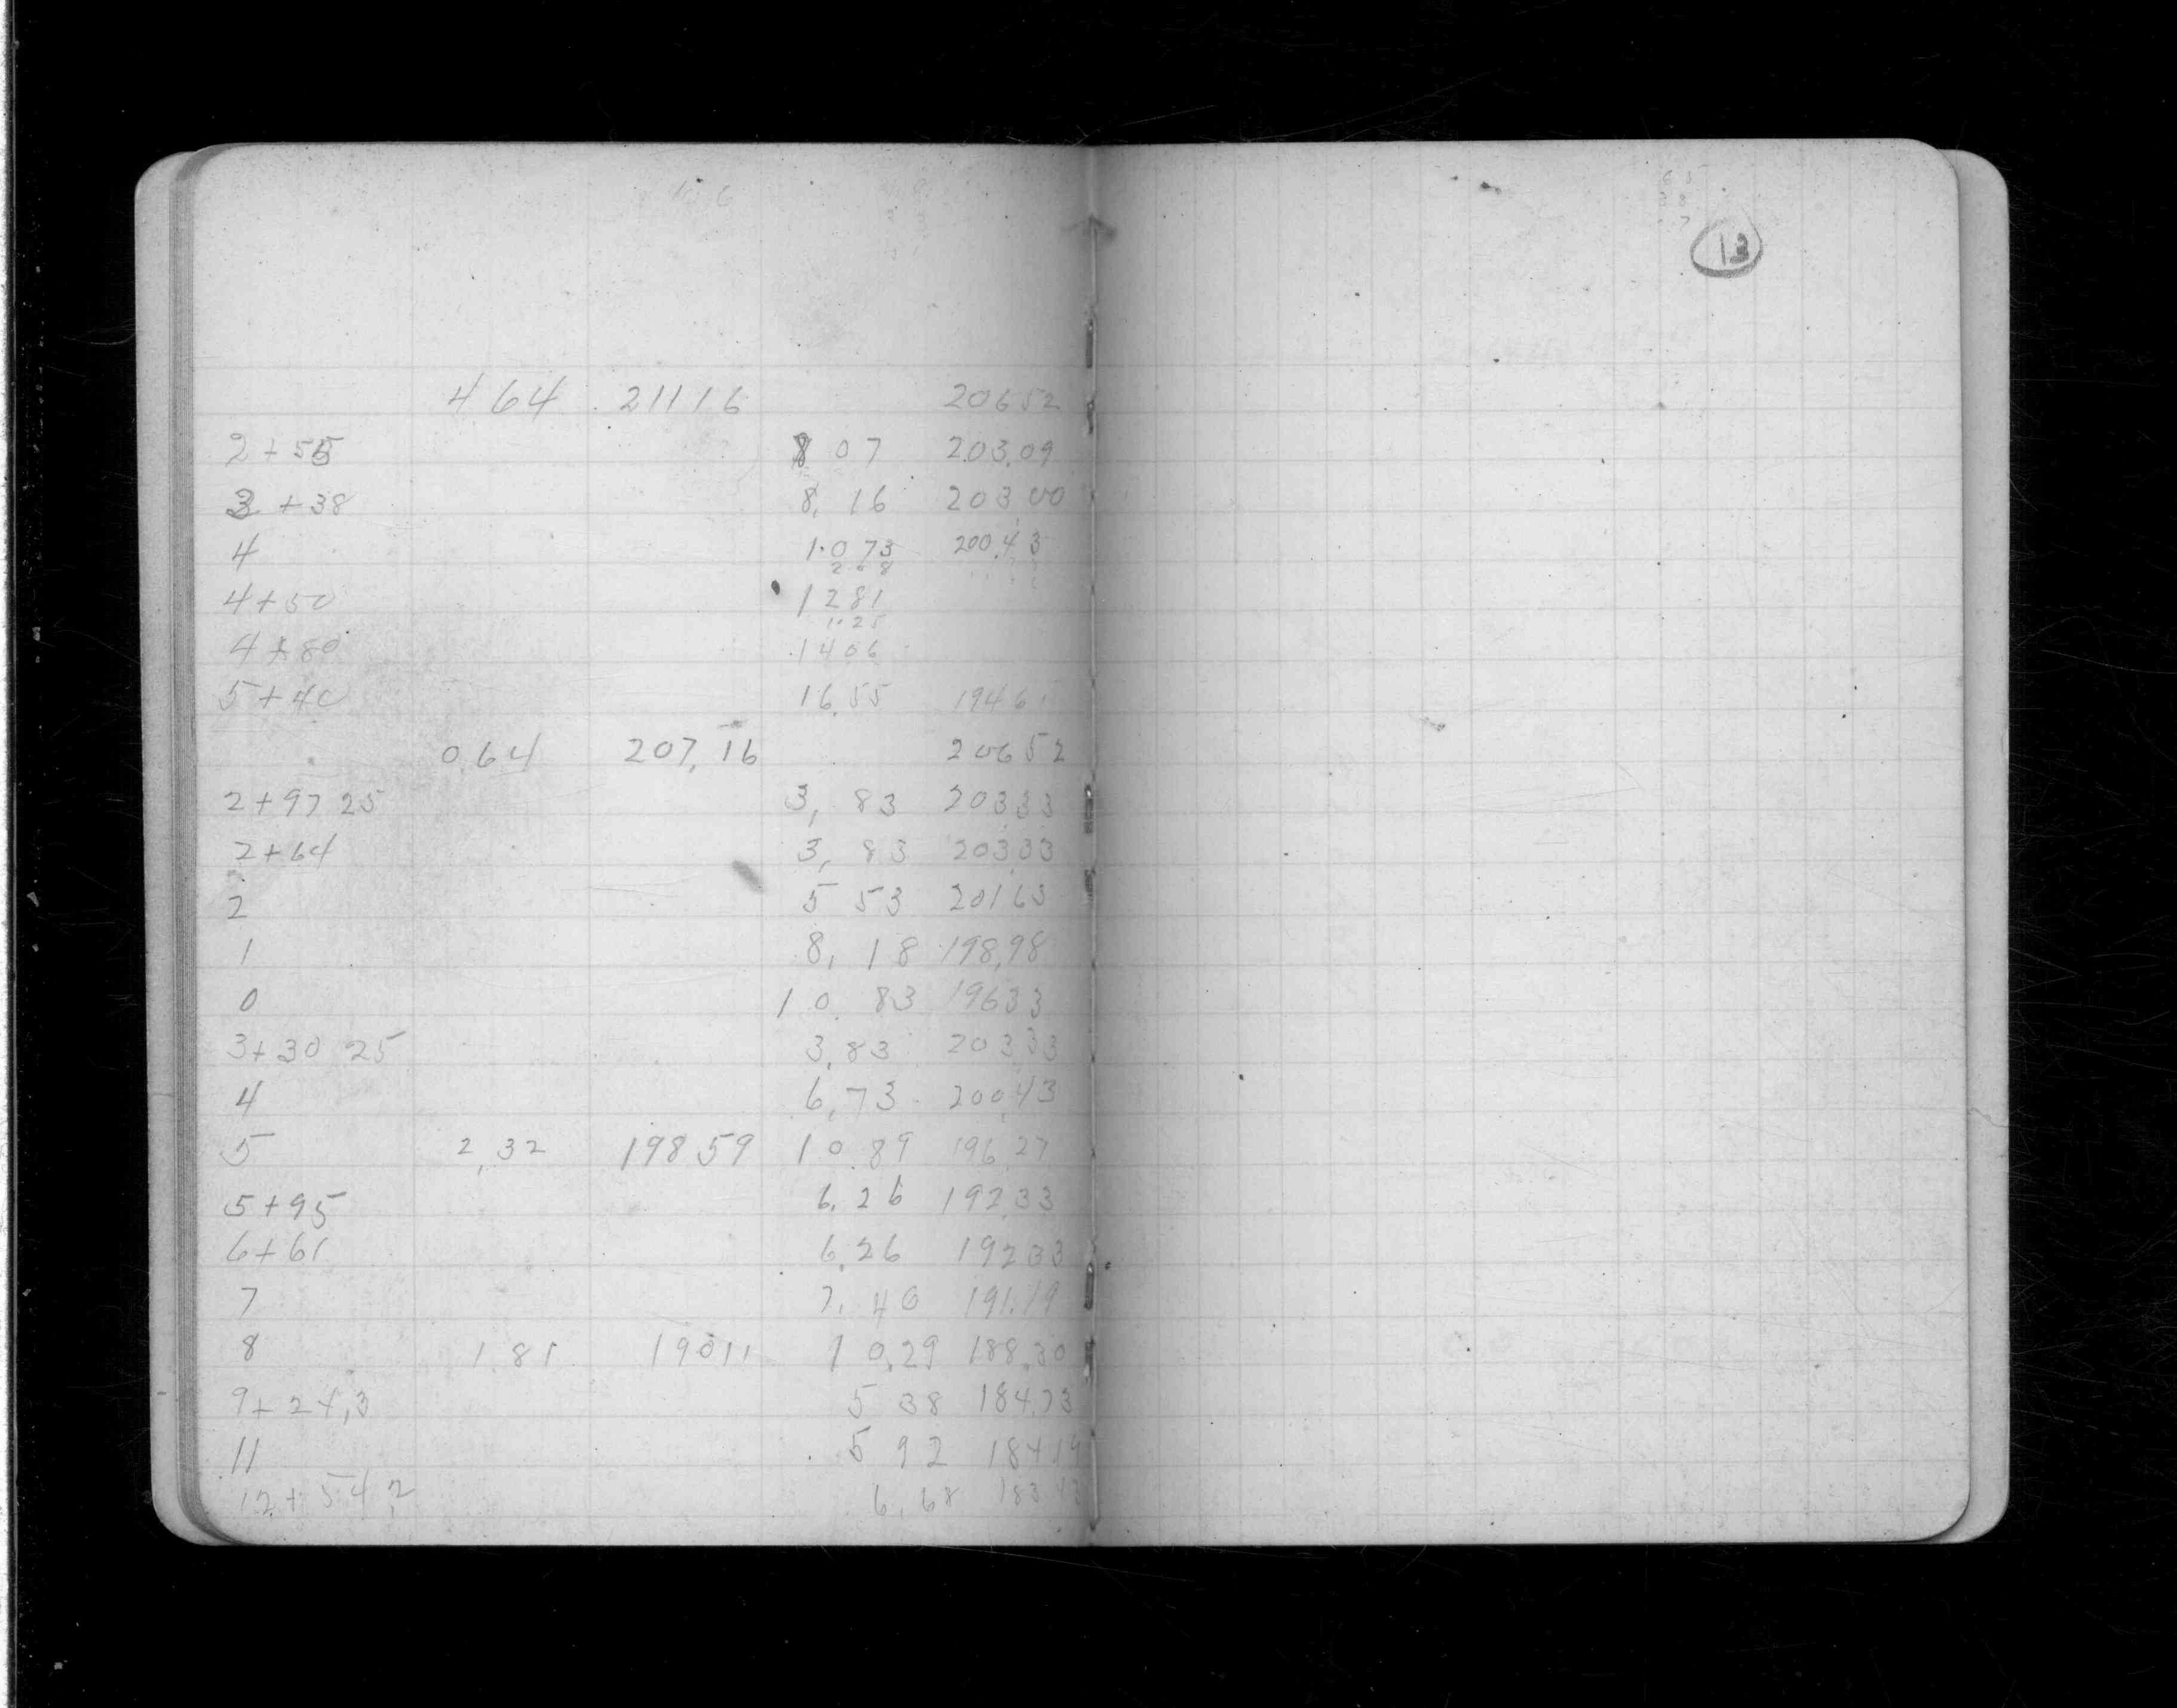 4 64 211 16 206 52
2+55 8 07 203.09
3 +38 8, 16 203,00
4 1.0 73 200.43
2.8
4+50 1 281
1.25
4+80 1406
5+40 16.55 194 61
0.64 207.16 206 52
2+97 25 3, 83 203 33
2+64 3, 83 203.33
2 5 53 201 63
1 8, 18 198,98
0 10. 83 196 33
3+30 25 3,83 203 33
4 6,73 200,43
5 2,32 198 59 10.89 196 27
5+95 6.26 192.33
6+61 6.26 192 33
7 7. 40 191.19
8 1 81 190 11 1 0,29 188.30
9+24,3 5 38 184.73
11 5 92 184 19
12+54,2 6.68 183 43
13